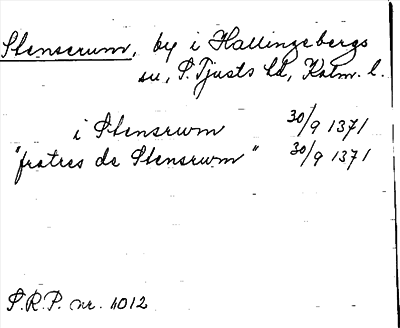 Stensrum, by i Hallingebergs
sn, S. Tjusts hd, Kalm. l.
i Stensrum 30/9 1371
"fratres de Stensrum" 30/9 1371
S.R.P. nr. 1012